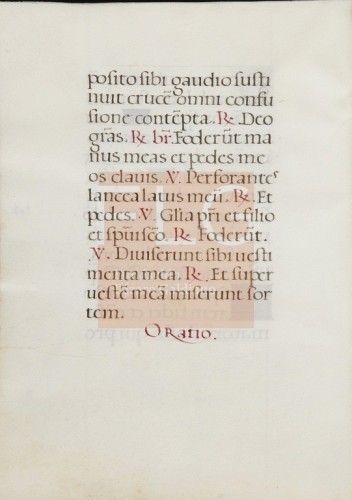 posito sibi gaudio susti
nuit crucē omni confu
sione contēpta. ℟. Deo
grās. ℟ br̄. Foderūt ma
nus meas et pedes me
os clauis. ℣. Perforantes
lancea latus meū. ℟. Et
pedes. ℣. Glīa pr̄i et filio
et sp̄uisc̄o. ℟. Foderūt.
℣. Diuiserunt sibi uesti
menta mea. ℟. Et super
uestē meā miserunt sor
tem.
Oratio.